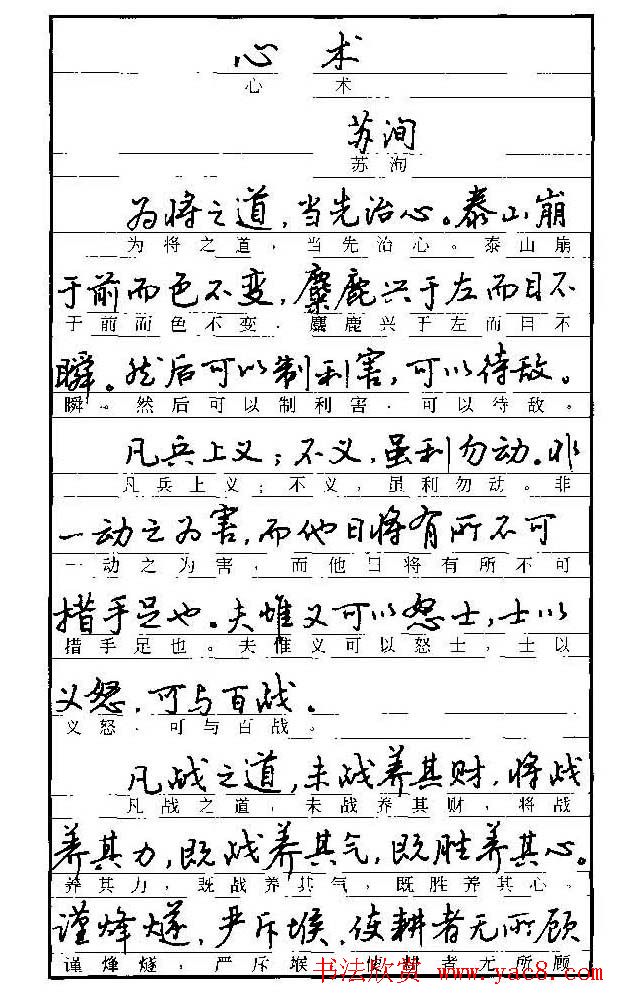 心 术
心 术
苏洵
苏洵
为将之道，当先治心。泰山崩
为将之道，当先治心。泰山崩
于前而色不变，麋鹿兴于左而目不
于前而色不变，麋鹿兴于左而目不
瞬。然后可以制利害，可以待敌。
瞬。然后可以制利害，可以待敌。
凡兵上义；不义，虽利勿动。非
凡兵上义；不义，虽利勿动。非
一动之为害，而他日将有所不可
一动之为害，而他日将有所不可
措手足也。夫惟义可以怒士，士以
措手足也。夫惟义可以怒士，士以
义怒，可与百战。
义怒，可与百战。
凡战之道，未战养其财，将战
凡战之道，未战养其财，将战
养其力，既战养其气，既胜养其心。
养其力，既战养其气，既胜养其心。
谨烽燧，严斥堠，使耕者无所顾
谨烽燧，严斥堠，使耕者无所顾
书法欣赏 www.yac8.com